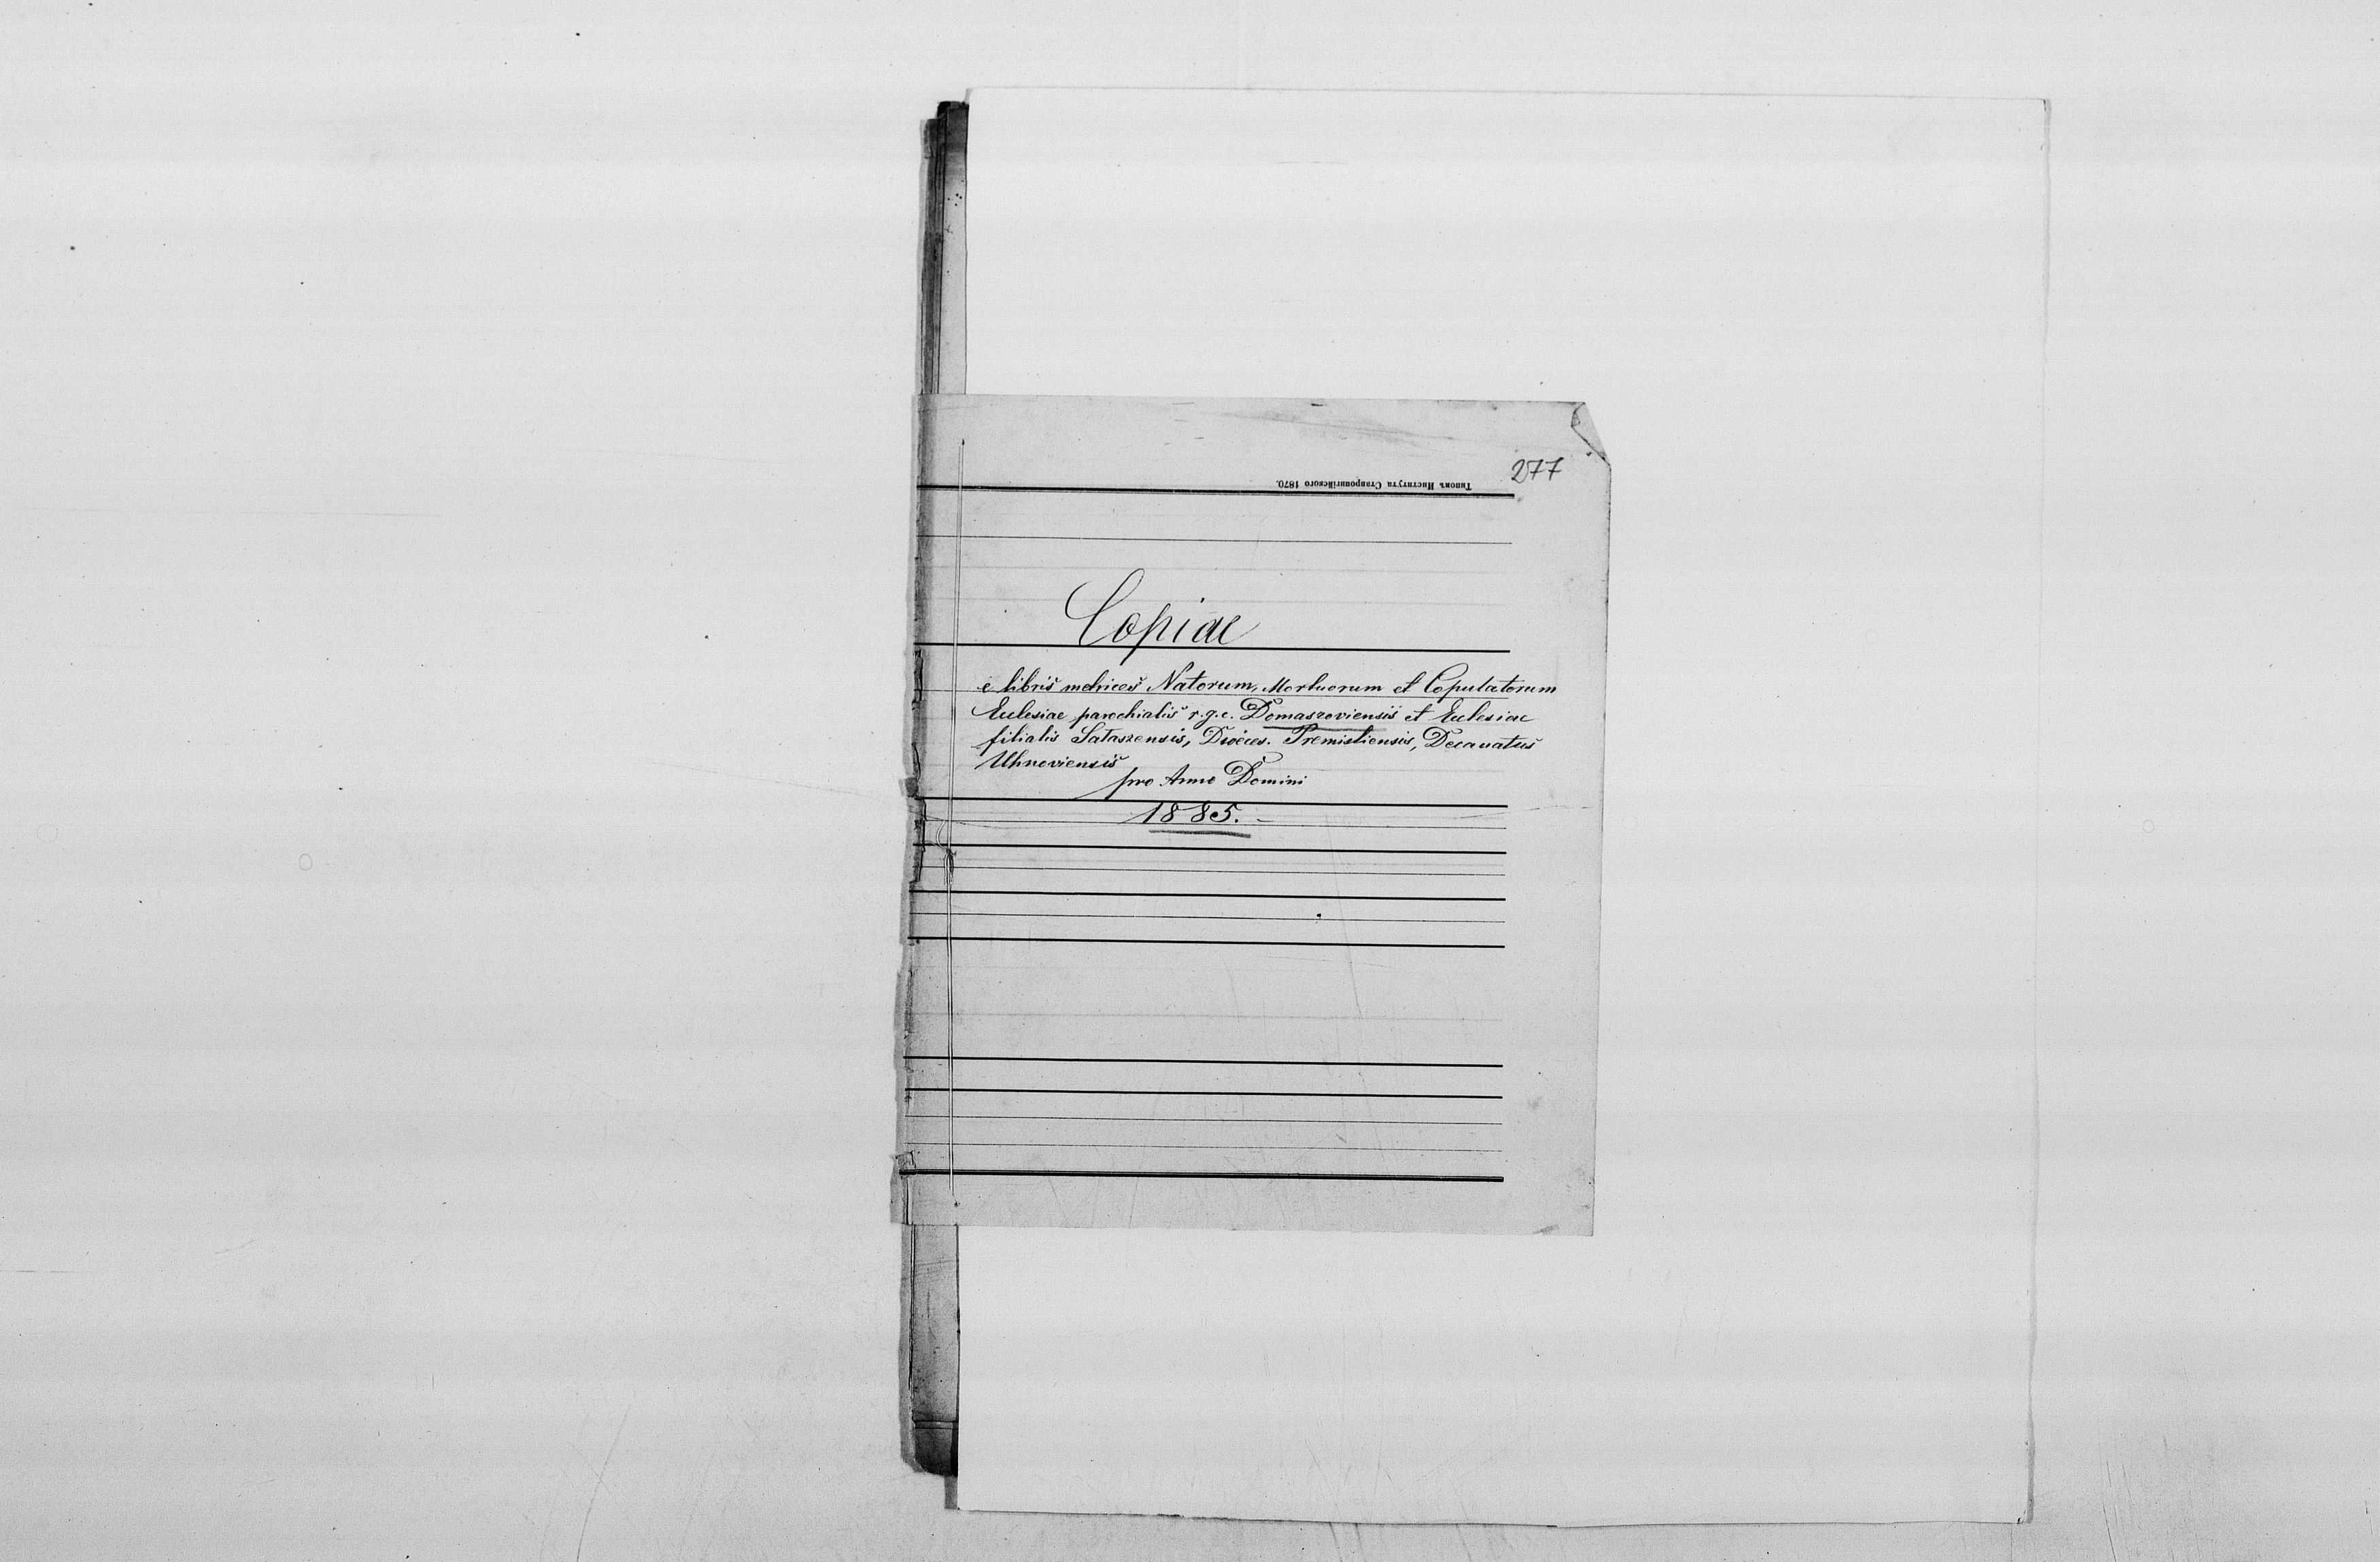 277
Типомъ Института Ставропигійского 1870.
Copiae
e libris metrices Natorum, Mortuorum et Copulatorum
Eclesiae parochialis r.g.c. Domaszoviensis et Eclesiae
filialis Sataszensis, Dioeces. Premisliensis, Decanatus
Uhnoviensis
pro Anno Domini
1885.